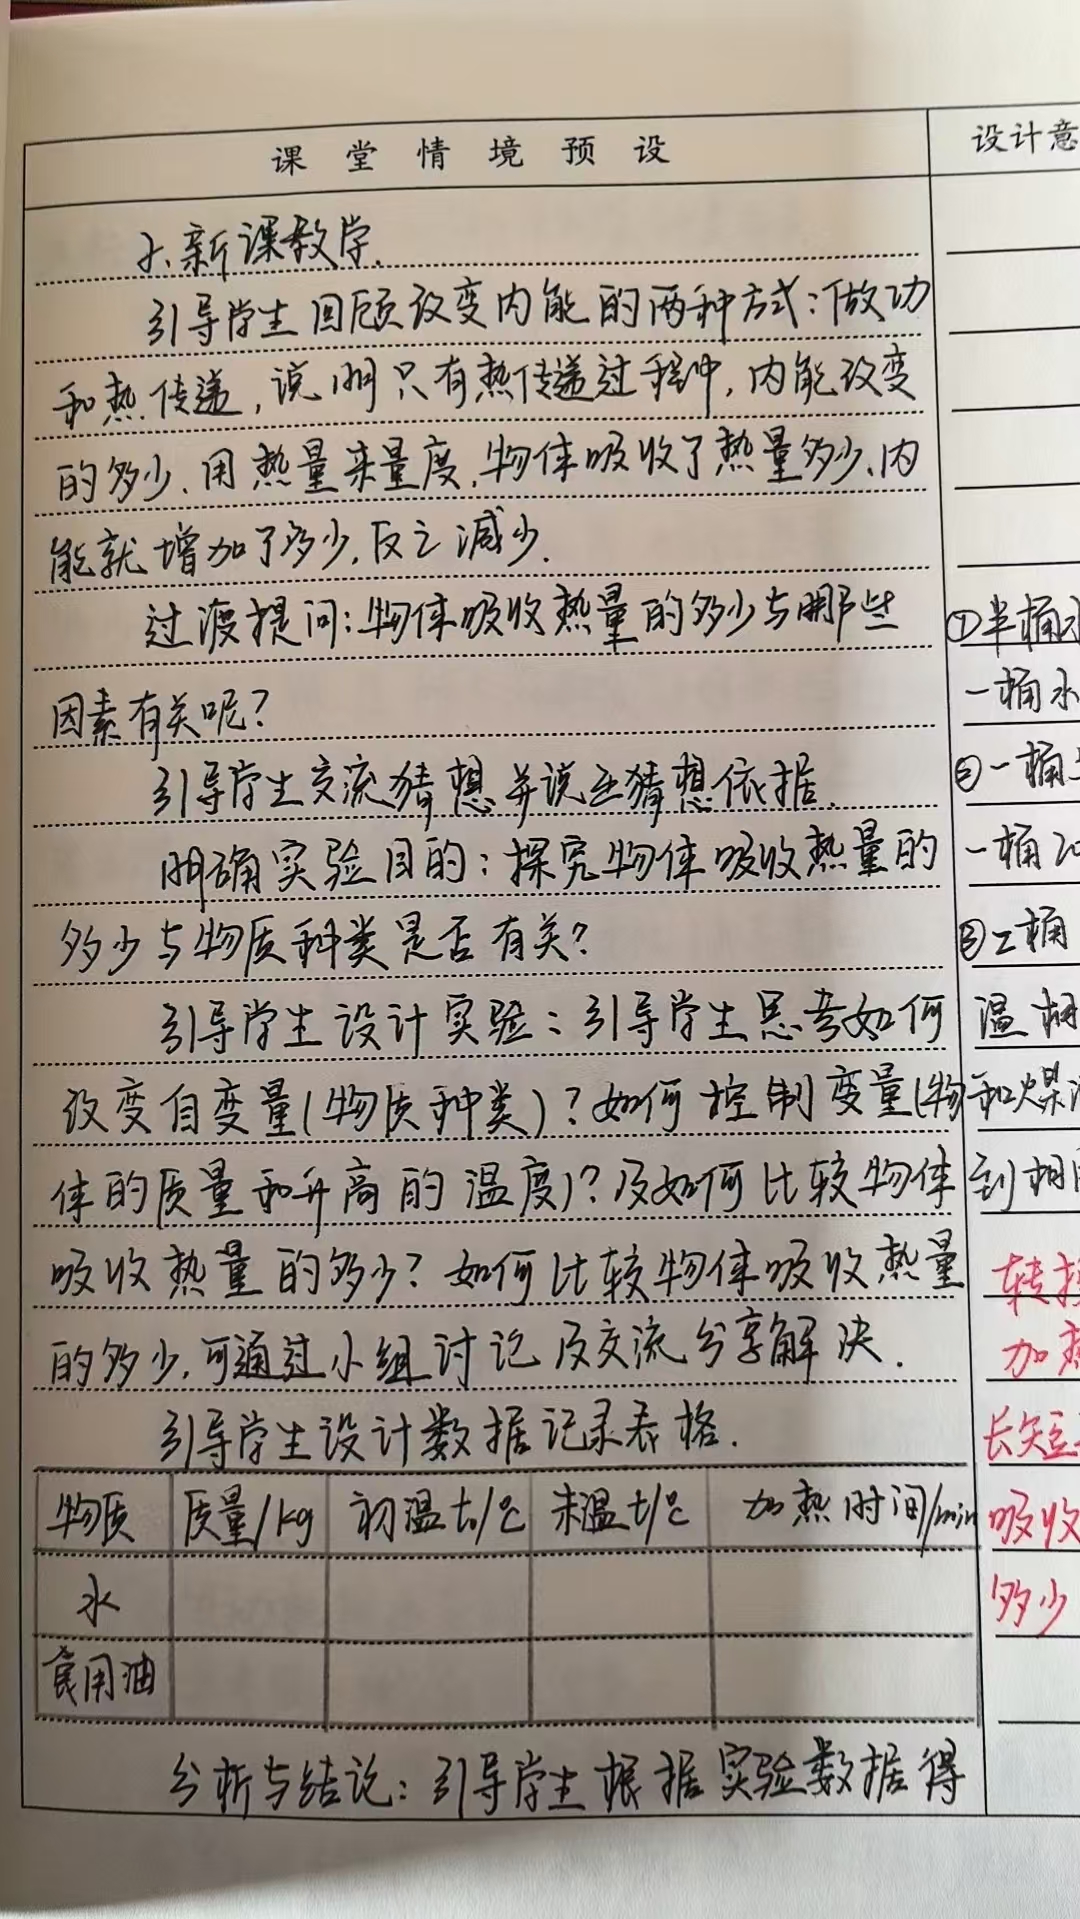 课堂情境预设
设计意
2、新课教学.
引导学生回顾改变内能的两种方式:做功
和热传递,说明只有热传递过程中,内能改变
的多少、用热量来量度,物体吸收了热量多少、内
能就增加了多少,反之减少.
过渡提问:物体吸收热量的多少与哪些
因素有关呢?
引导学生交流猜想并说出猜想依据.
明确实验目的:探究物体吸收热量的
多少与物质种类是否有关?
引导学生设计实验:引导学生思考如何
改变自变量(物质种类)?如何控制变量(物
体的质量和升高的温度)?及如何比较物体
吸收热量的多少?如何比较物体吸收热量
的多少,可通过小组讨论及交流分享解决.
引导学生设计数据记录表格.
物质 质量/kg 初温t₀/℃ 末温t/℃ 加热时间/min
水
食用油
分析与结论:引导学生根据实验数据得
①半桶水
一桶水
②一桶
一桶
③二桶
温相
和煤油
到相同
转换
加热
长短
吸收
多少